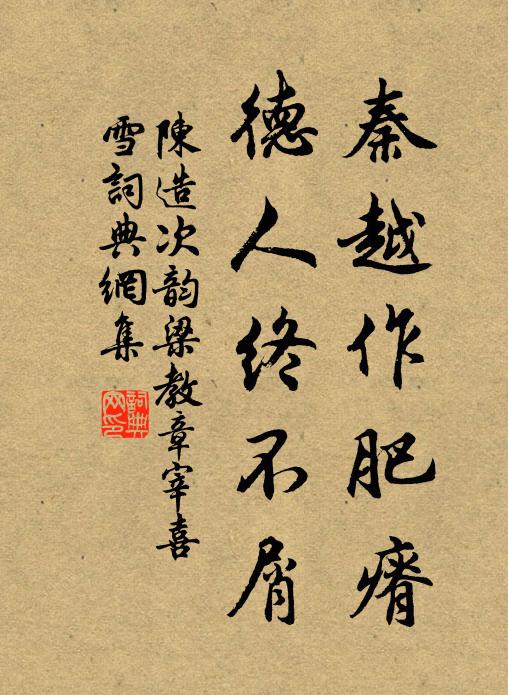 秦越作肥瘠
德人終不屑
陳造次韵梁教章宰喜
雪詞典網集
詞典
网印